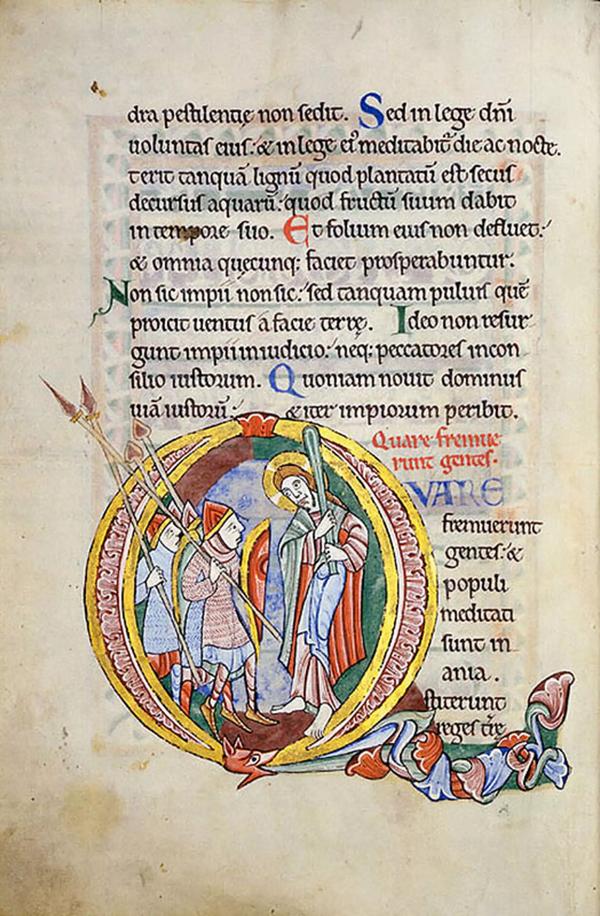 dra pestilentię non sedit. Sed in lege dñi
uoluntas eius: & in lege ei' meditabit̃ die ac nocte.
terit tanquã lignũ quod plantatũ est secus
decursus aquarũ: quod fructũ suum dabit
in tempore suo. Et folium eius non defluet:
& omnia quęcunq; faciet prosperabuntur.
Non sic impii non sic: sed tanquam puluis quẽ
proicit uentus a facie terrę. Ideo non resur
gunt impii in iudicio: neq; peccatores in con
silio iustorum. Quoniam nouit dominus
uiã iustorũ: & iter impiorum peribit.
Quare fremue
runt gentes.
QVARE
fremuerunt
gentes: &
populi
meditati
sunt in
ania.
stiterunt
reges tr̃e